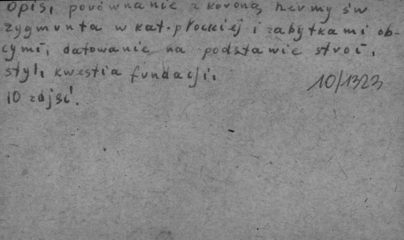 Opis, porównanie z koroną hermy św
Zygmunta w kat. płockiej i zabytkami ob-
cymi, datowanie na podstawie stroi,
styl, kwestia fundacji.
10 zdjęć.
10/1323